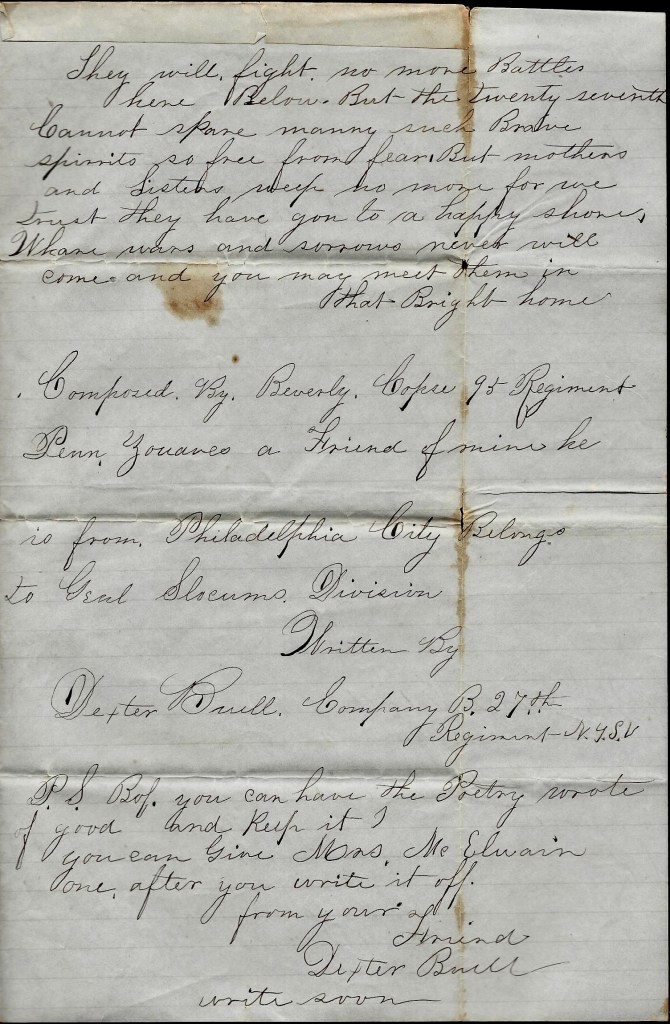 They will, fight, no more Battles
here Below. But the twenty seventh
Cannot spare manny such Brave
spirrits so free from fear. But mothers
and Sisters weep no more for we
trust they have gon to a happy shore,
Whare wars and sorrows never will
come and you may meet them in
that Bright home
Composed. By. Beverly. Copse 95 Regiment
Penn, Zouaves a Friend of mine he
is from, Philadelphia City Belongs
to Genl Slocums. Division
Written By
Dexter Buell. Company B. 27th
Regiment N.Y.S.V
P.S. you can have the Poetry wrote
of good and Keep it
you can Give Mrs, Mc Elwain
one, after you write it off.
from your
Friend
Dexter Buell
write soon